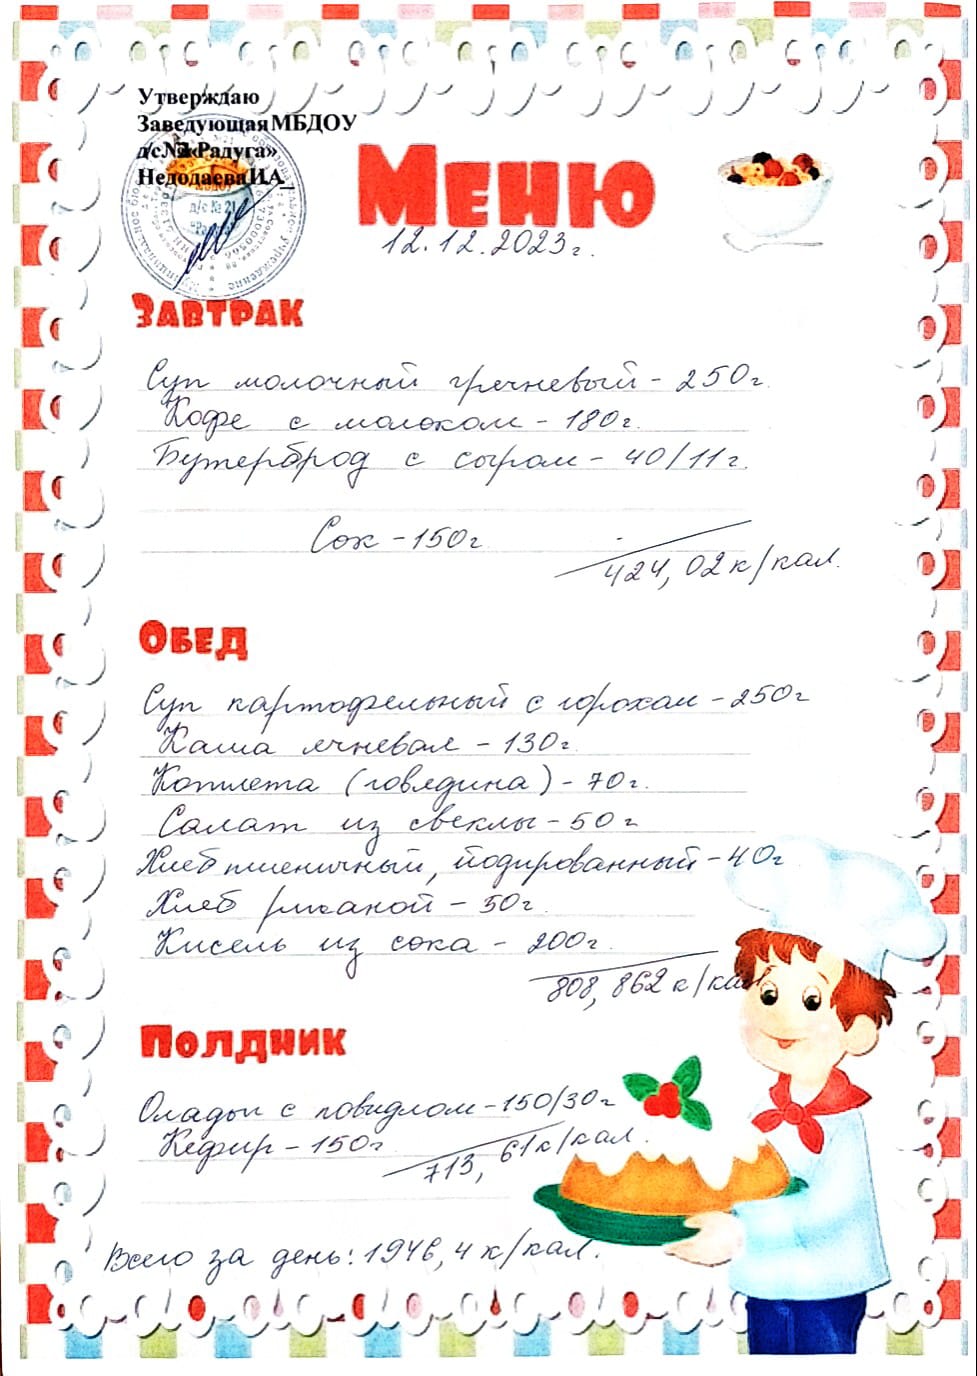 Утверждаю
Заведующая МБДОУ
д/с «Радуга»
Недодаева И.А_
д/с № 21
Меню
12.12.2023г.
Завтрак
Суп молочный гречневый - 250г.
Кофе с молоком - 180г.
Бутерброд с сыром - 40/11г.
Сок - 150г
424,02 к/кал.
Обед
Суп картофельный с горохом - 250г
Каша ячневая - 130г.
Котлета (говядина) - 70г.
Салат из свеклы - 50г
Хлеб пшеничный, йодированный - 40г
Хлеб ржаной - 50г.
Кисель из сока - 200г.
808,862 к/кал
Полдник
Оладьи с повидлом - 150/30г
Кефир - 150г
713,61 к/кал.
Всего за день: 1946,4 к/кал.